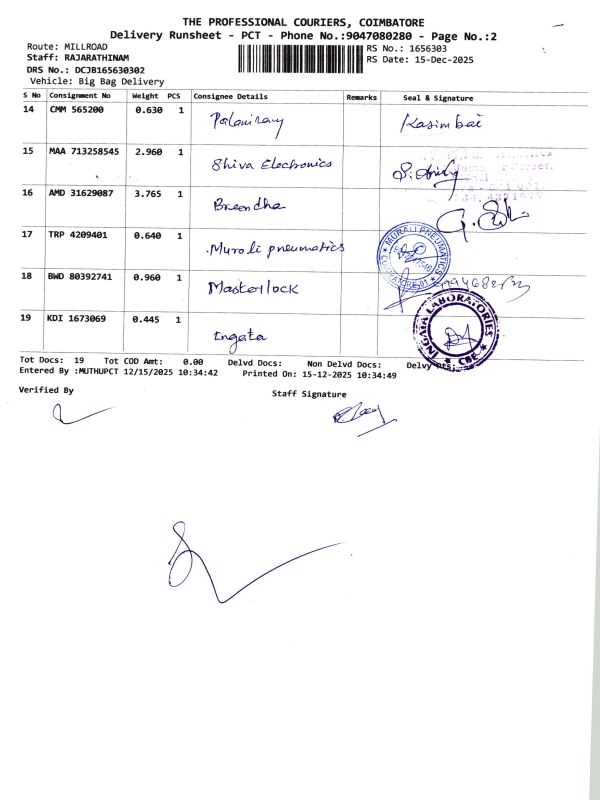 THE PROFESSIONAL COURIERS, COIMBATORE
Delivery Runsheet - PCT - Phone No.:9047080280 - Page No.:2
Route: MILLROAD
RS No.: 1656303
Staff: RAJARATHINAM
RS Date: 15-Dec-2025
DRS No.: DCJB165630302
Vehicle: Big Bag Delivery
S No Consignment No Weight PCS Consignee Details Remarks Seal & Signature
14 CMM 565200 0.630 1 Kasim bai
15 MAA 713258545 2.960 1 Shiva Electronics
16 AMD 31629087 3.765 1 Breendha
17 TRP 4209401 0.640 1 Murali pneumatics MURALI PNEUMATICS
18 BWD 80392741 0.960 1 Masterlock
19 KDI 1673069 0.445 1 Ingata INGATA LABORATORIES CBE
Tot Docs: 19 Tot COD Amt: 0.00 Delvd Docs: Non Delvd Docs: Delvy pts:
Entered By :MUTHUPCT 12/15/2025 10:34:42 Printed On: 15-12-2025 10:34:49
Verified By
Staff Signature